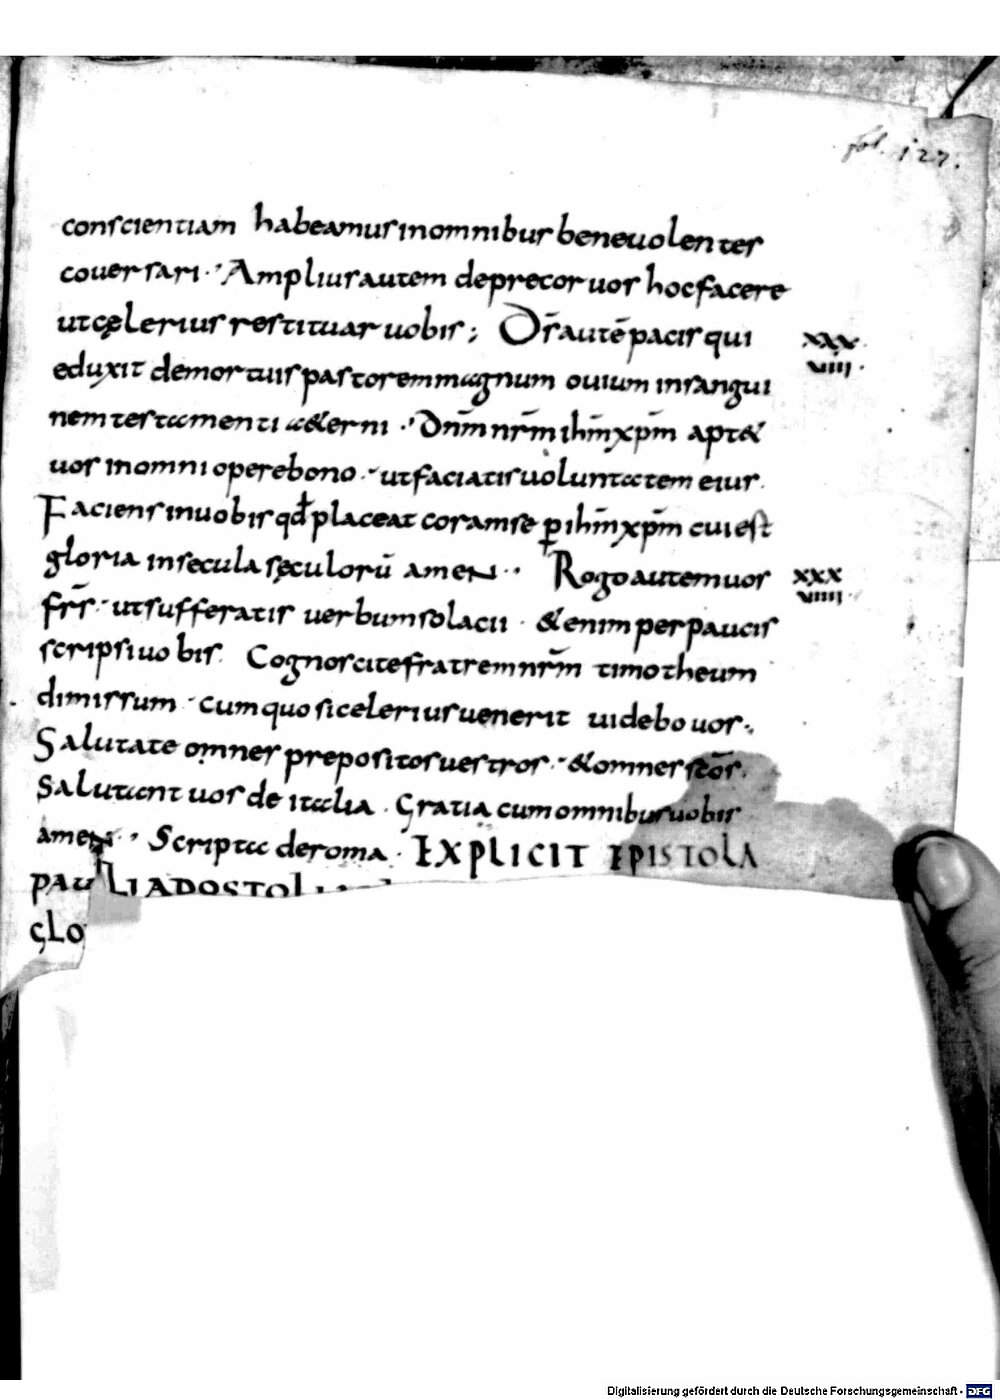 fol. 127.
conscientiam habeamus in omnibus beneuolenter
couersari · Amplius autem deprecor uos hoc facere
ut cęlerius restituar uobis ; Ds̄ autē pacis qui xxx
eduxit de mortuis pastorem magnum ouium in sangui viii ·
nem testamenti aeterni · Dnm̄ nrm̄ ihm̄ xpm̄ apt&
uos in omni opere bono · ut faciatis uoluntatem eius ·
Faciens in uobis qd̄ placeat coram se ꝑ ihm̄ xpm̄ cui est
gloria in secula sęculorū amen · Rogo autem uos xxx
frs̄ · ut sufferatis uerbum solacii · &enim per paucis viiii ·
scripsi uobis · Cognoscite fratrem nrm̄ timotheum
dimissum · cum quo si celerius uenerit uidebo uos ·,
Salutate omnes prepositos uestros · & omnes scōs ·
Salutant uos de italia · Gratia cum omnibus uobis
amen · Scripta de roma · EXPLICIT EPISTOLA
PAULI APOSTOLI
Digitalisierung gefördert durch die Deutsche Forschungsgemeinschaft - DFG